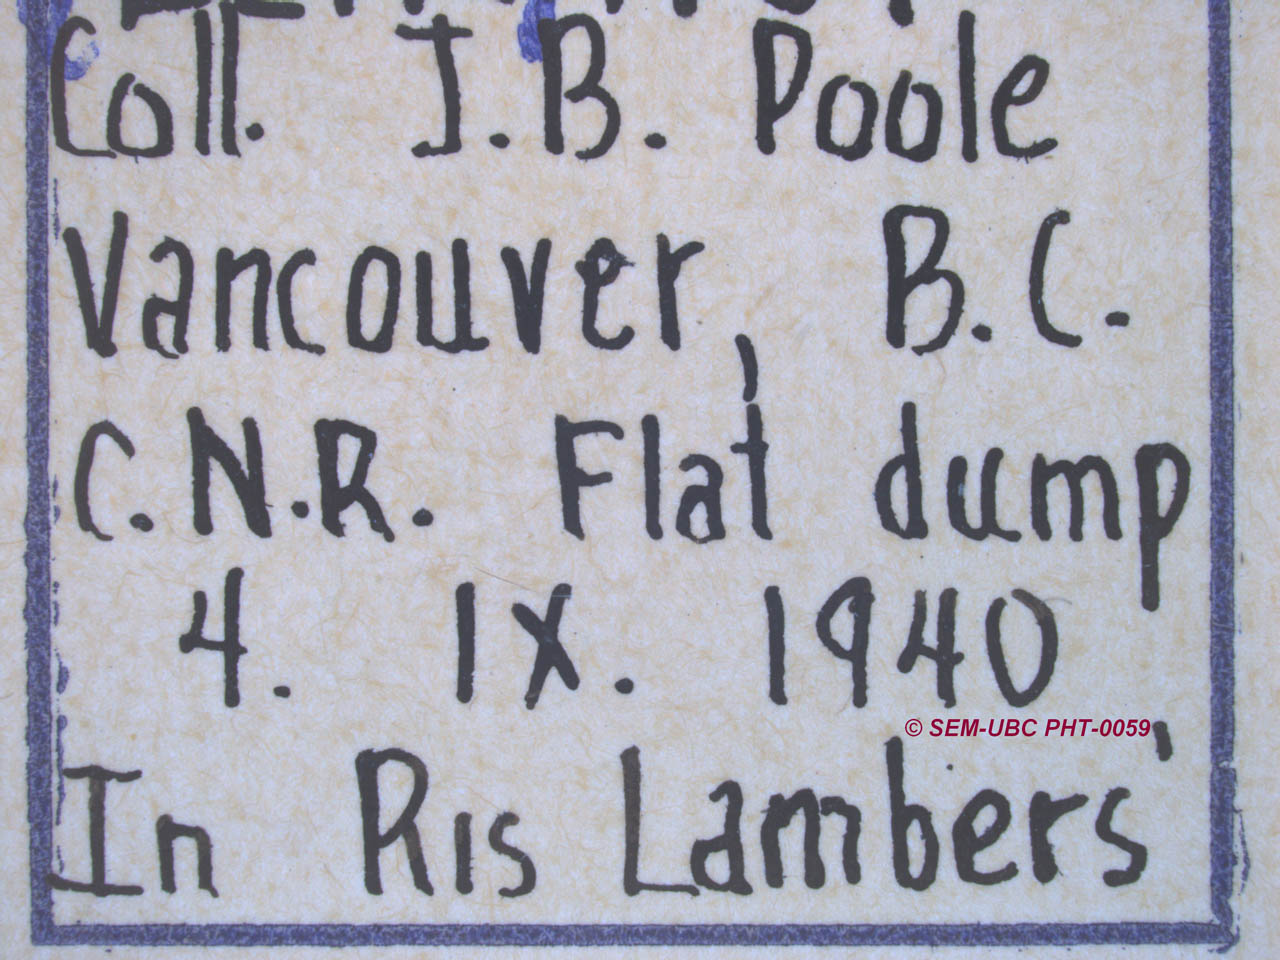 Coll. J.B. Poole
Vancouver, B.C.
C.N.R. Flat dump
4. IX. 1940
© SEM-UBC PHT-0059
In Ris Lambers'